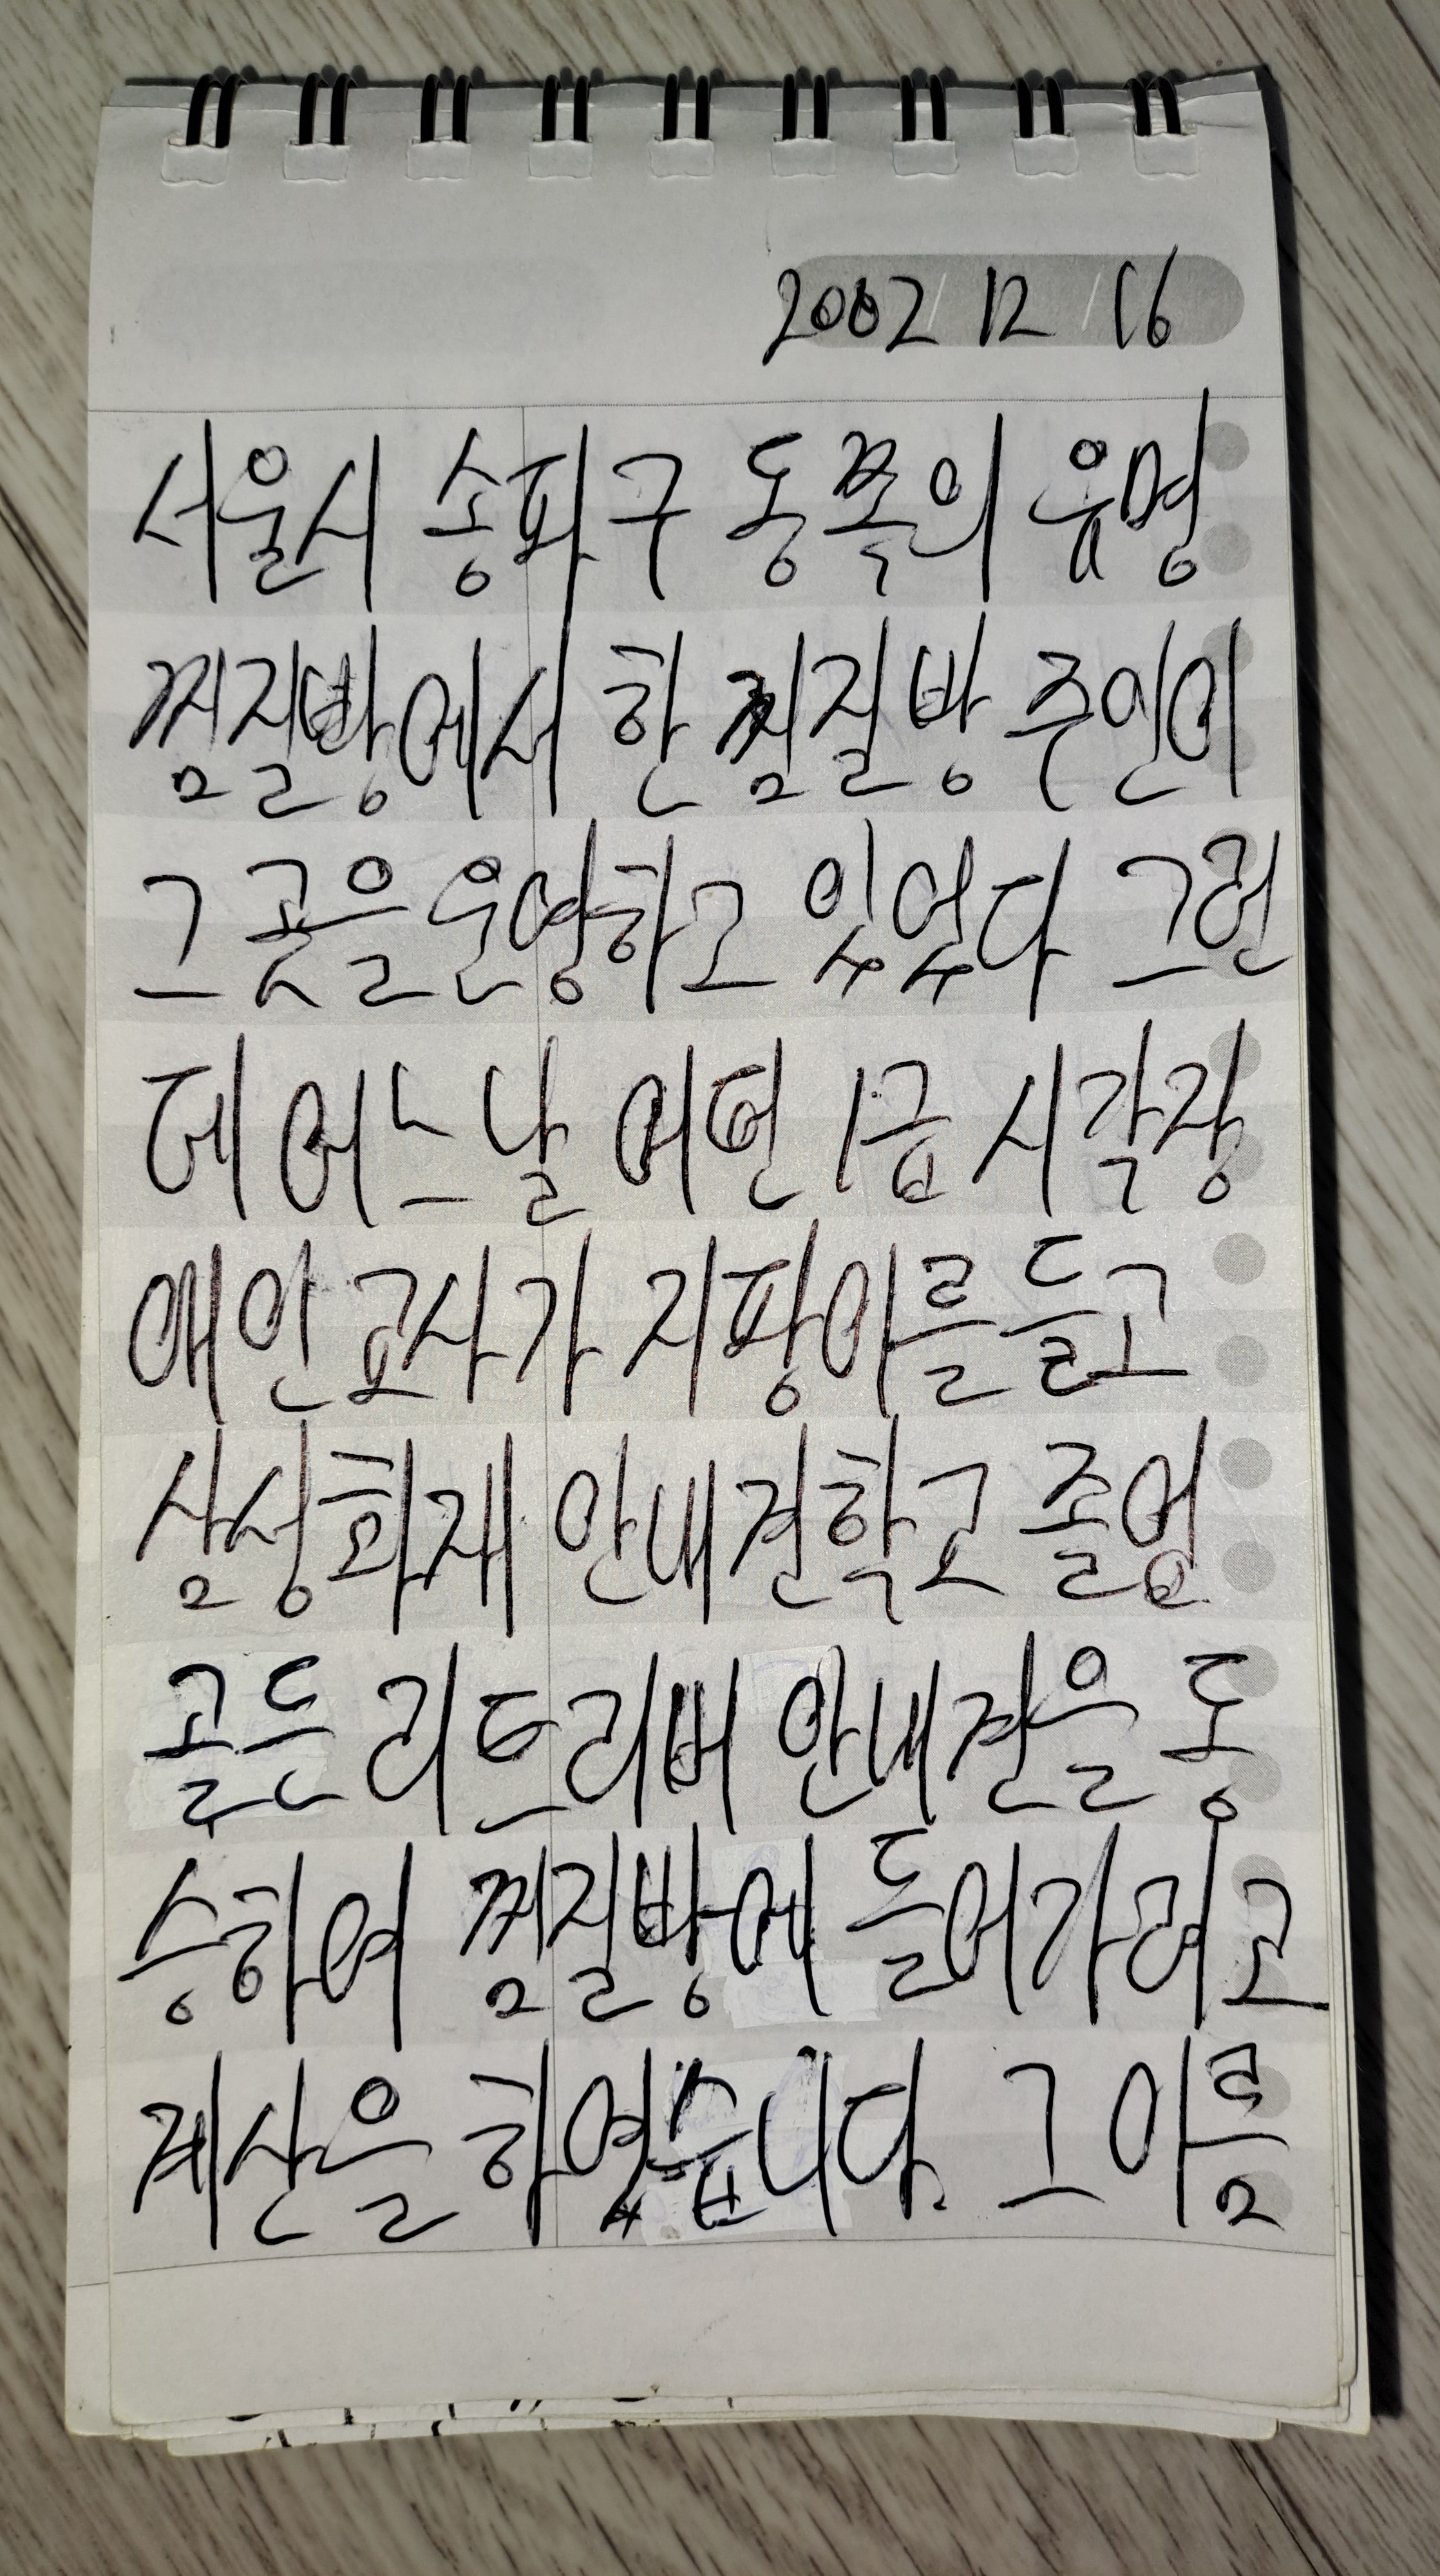 2002 12 16
서울시 송파구 동쪽의 유명
찜질방에서 한 찜질방 주인이
그 곳을 운영하고 있었다 그런
데 어느날 어떤 1급 시각장
애인 교사가 지팡이를 들고
삼성화재 안내견학교 졸업
골든 리트리버 안내견을 동
승하여 찜질방에 들어가려고
계산을 하였습니다. 그 이름